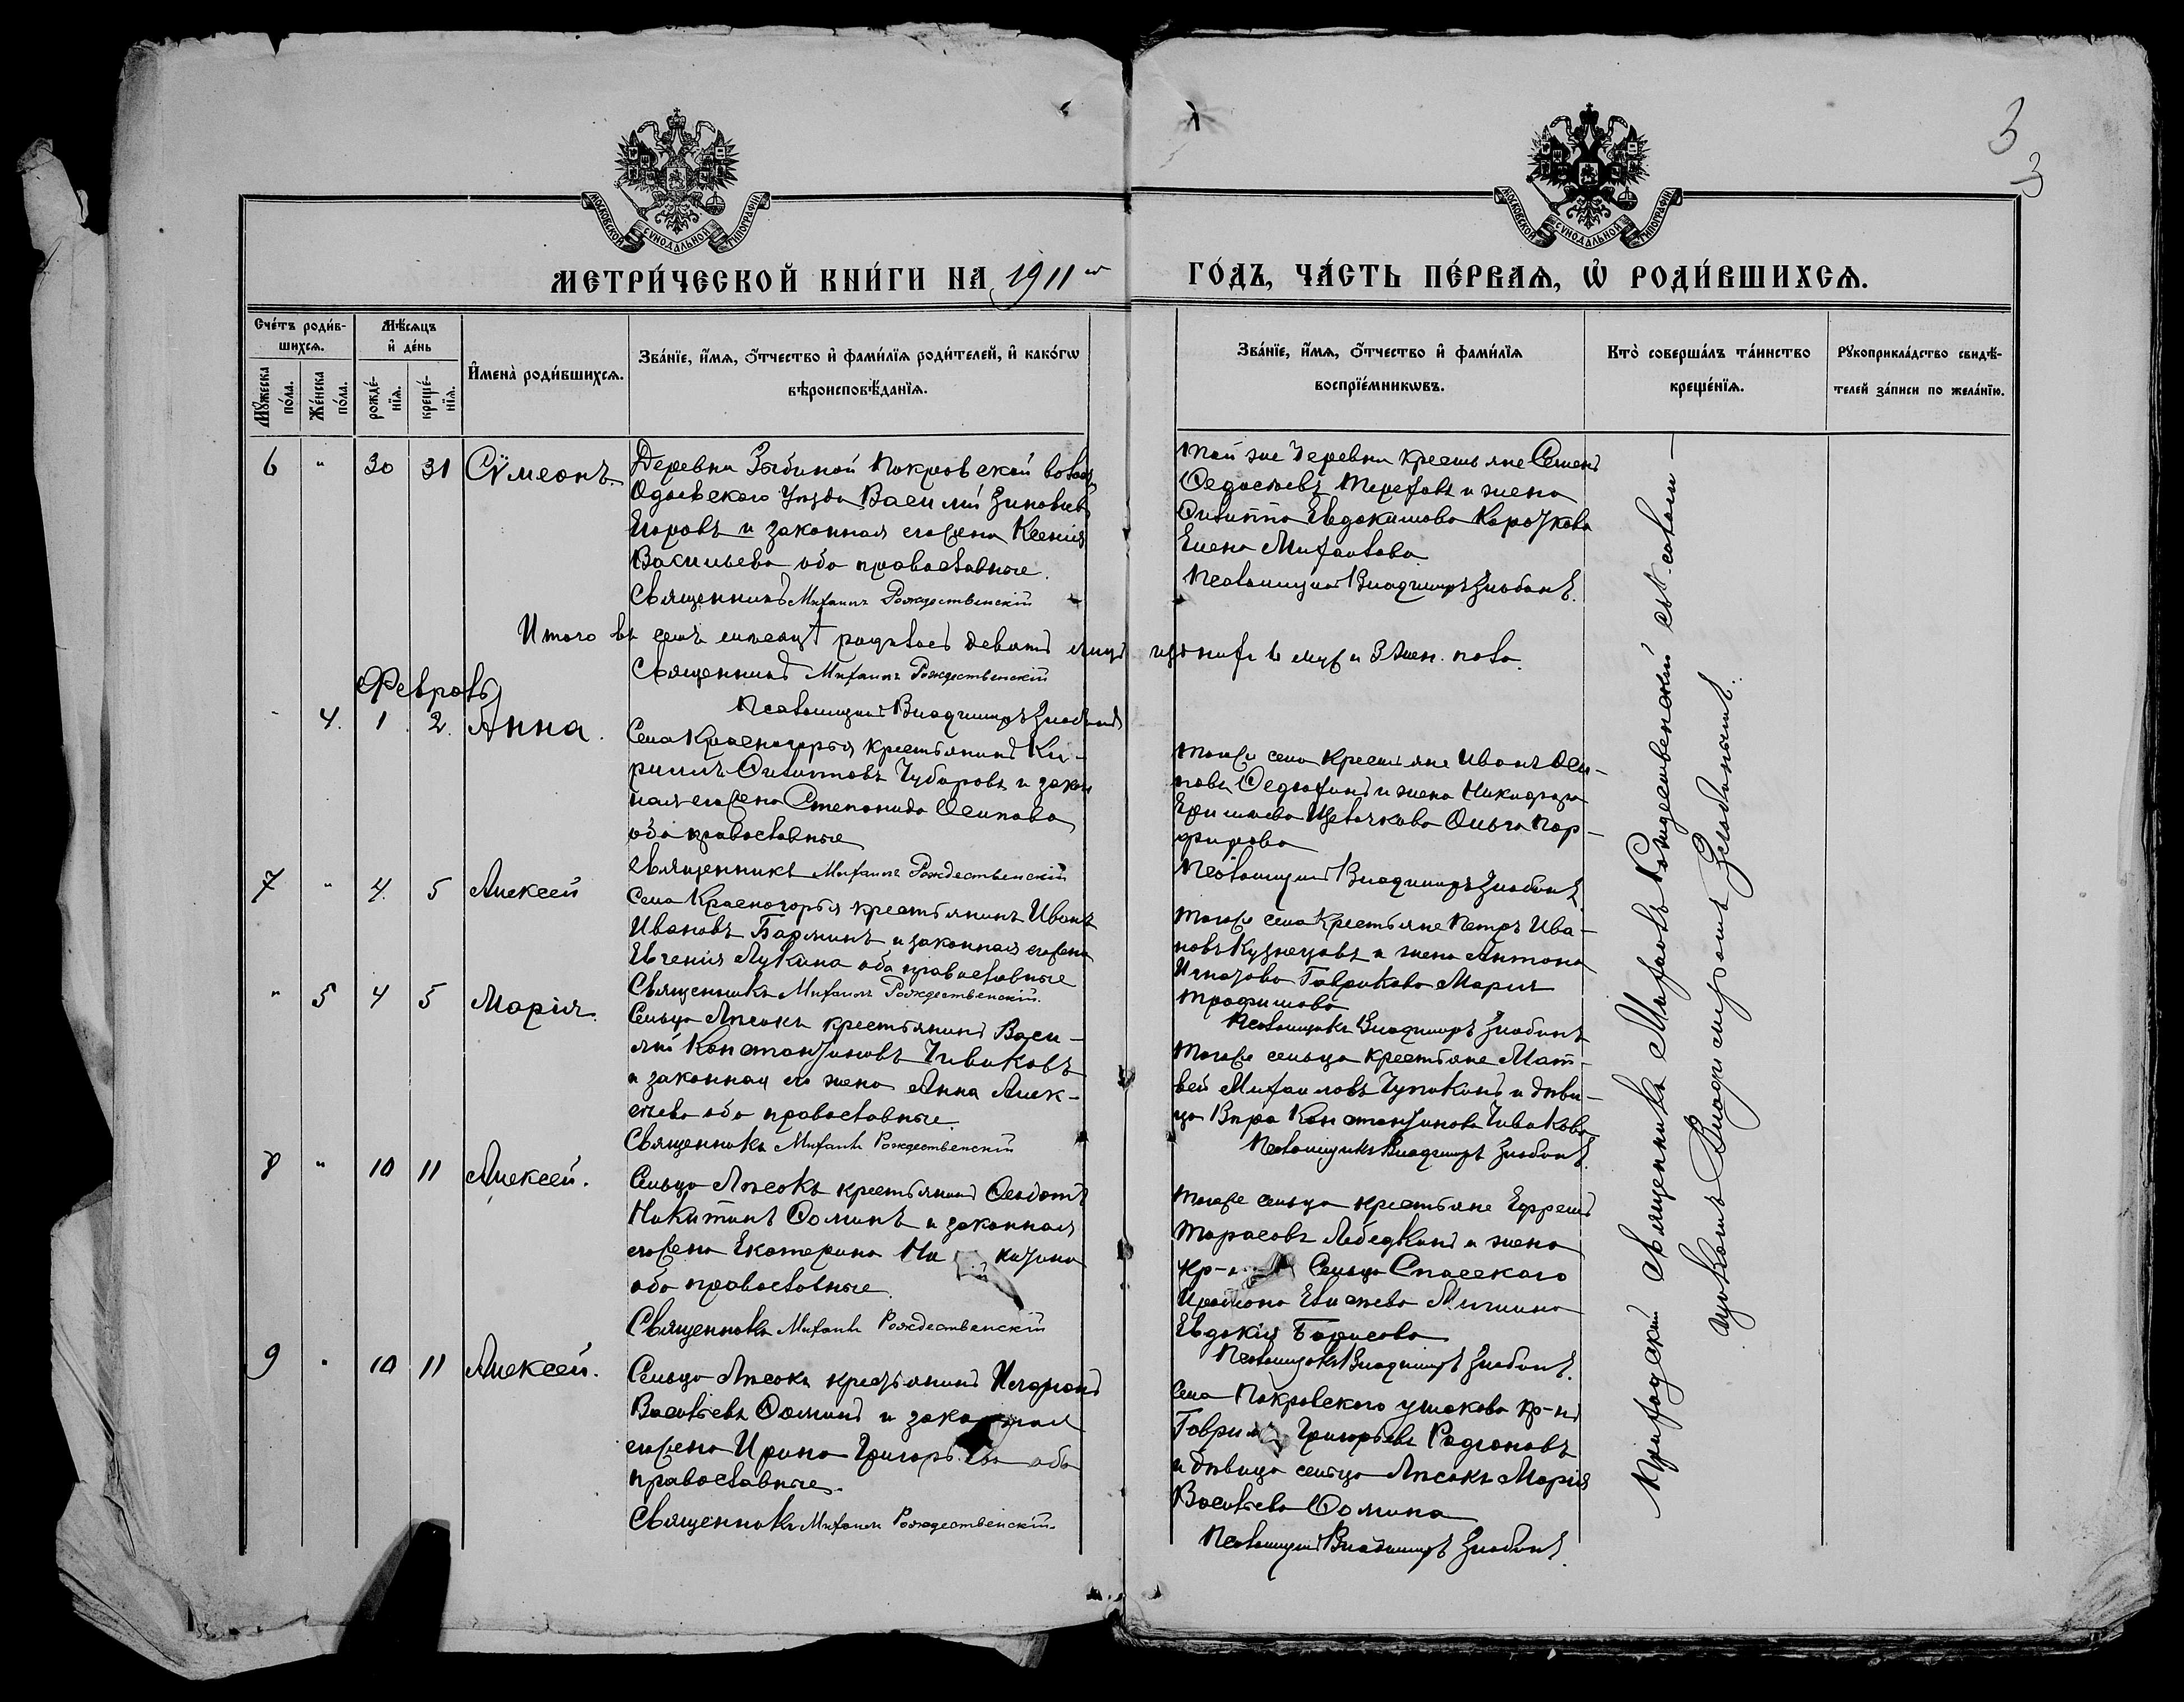 3
3
МОСКОВСКОЙ СѴНОДАЛЬНОЙ ТИПОГРАФІИ
МОСКОВСКОЙ СѴНОДАЛЬНОЙ ТИПОГРАФІИ
МЕТРИ́ЧЕСКОЙ КНИ́ГИ НА 1911 ГО́ДЪ, ЧА́СТЬ ПЕ́РВАѦ, Ѡ҆ РОДИ́ВШИХСѦ.
Сче́тъ роди́в-
шихсѧ.
Мꙋ́жеска по́ла.
Же́нска по́ла.
Мѣ́сѧцъ и҆ де́нь
рожде́-
нїѧ.
креще́-
нїѧ.
И҆мена̀ роди́вшихсѧ.
Зва́нїе, и҆́мѧ, ѻ҆́тчество и҆ фами́лїѧ роди́телей, и҆ како́гѡ
вѣроисповѣ́данїѧ.
Зва́нїе, и҆́мѧ, ѻ҆́тчество и҆ фами́лїѧ
воспрїе́мникѡвъ.
Кто̀ соверша́лъ та́инство
креще́нїѧ.
Рꙋкоприкла́дство свидѣ́-
телей за́писи по жела́нїю.
6 " 30 31 Сѵмеонъ.
Деревни Зыбиной Покровской волос.
Одоевского Уѣзда Василій Зиновьевъ
Егоровъ и законная его жена Ксенія
Васильева оба православные.
Священникъ Михаилъ Рождественскій
Той же деревни крестьяне Семенъ
Федосѣевъ Тереховъ и жена
Филиппа Евдокимова Корочкова
Елена Михаилова
Псаломщикъ Владимиръ Злобинъ.
Итого въ семъ мѣсяцѣ родилось девять лицъ изъ нихъ 6 муж и 3 жен. пола.
Священникъ Михаилъ Рождественскій
Псаломщикъ Владимиръ Злобинъ
Февраль
" 4. 1 2. Анна.
Села Красногорья крестьянинъ Ки-
риллъ Филипповъ Чубаровъ и закон
ная его жена Степанида Осипова
оба православные
Священникъ Михаилъ Рождественскій
Того же села крестьяне Иванъ Оси-
повъ Федюхинъ и жена Никифора
Ефимова Щеточкова Ольга Пор-
фирова
Псаломщикъ Владимиръ Злобинъ
7 " 4. 5 Алексей
Села Красногорья крестьянинъ Иванъ
Ивановъ Барминъ и законная его жена
Евгенія Лукина оба православные
Священникъ Михаилъ Рождественскій.
Того же села крестьяне Петръ Ива-
новъ Кузнецовъ и жена Антона
Игнатова Гаврикова Марія
Трофимова
Псаломщикъ Владимиръ Злобинъ
" 5 4 5 Марія.
Сельца Лѣсокъ крестьянинъ Васи-
лій Константиновъ Чиваковъ
и законная его жена Анна Алек-
сѣева оба православные.
Священникъ Михаилъ Рождественскій
Того же сельца крестьяне Мат-
вей Михаиловъ Чупикинъ и дѣви-
ца Вѣра Константинова Чивакова
Псаломщикъ Владимиръ Злобинъ.
8 " 10 11 Алексей.
Сельца Лѣсокъ крестьянинъ Федотъ
Никитинъ Фоминъ и законная
его жена Екатерина
оба православные.
Священникъ Михаилъ Рождественскій
Того же сельца крестьяне Ефремъ
Тарасовъ Лебедкинъ и жена
кр-н Сельца Спасского
Иродіона Елисѣева Мишина
Евдокія Борисова
Псаломщикъ Владимиръ Злобинъ.
9 " 10 11 Алексей.
Сельца Лѣсокъ крестьянинъ
Васильевъ Фоминъ и законная
его жена Ирина Григорьева оба
православные.
Священникъ Михаилъ Рождественскій.
Села Покровского Ушакова кр-нъ
Гаврилъ Григорьевъ Родіоновъ
и дѣвица сельца Лѣсокъ Марія
Васильева Фомина
Псаломщикъ Владимиръ Злобинъ.
Приходскій священникъ Михаилъ Рождественскій съ псалом-
щикомъ Владимиромъ Злобинымъ.